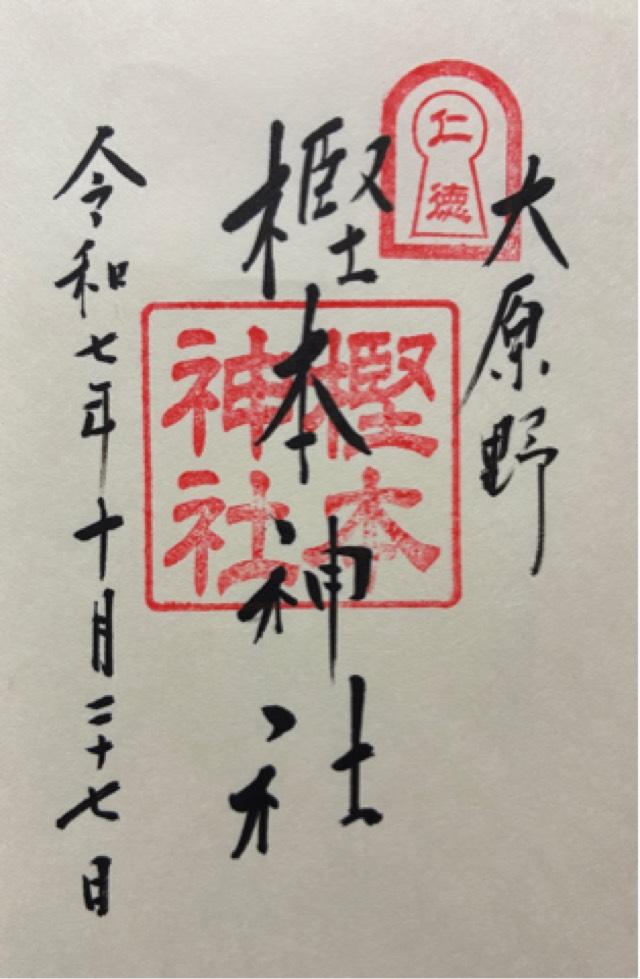 大原野
仁徳
樫本神社
樫本神社
令和七年十月二十七日